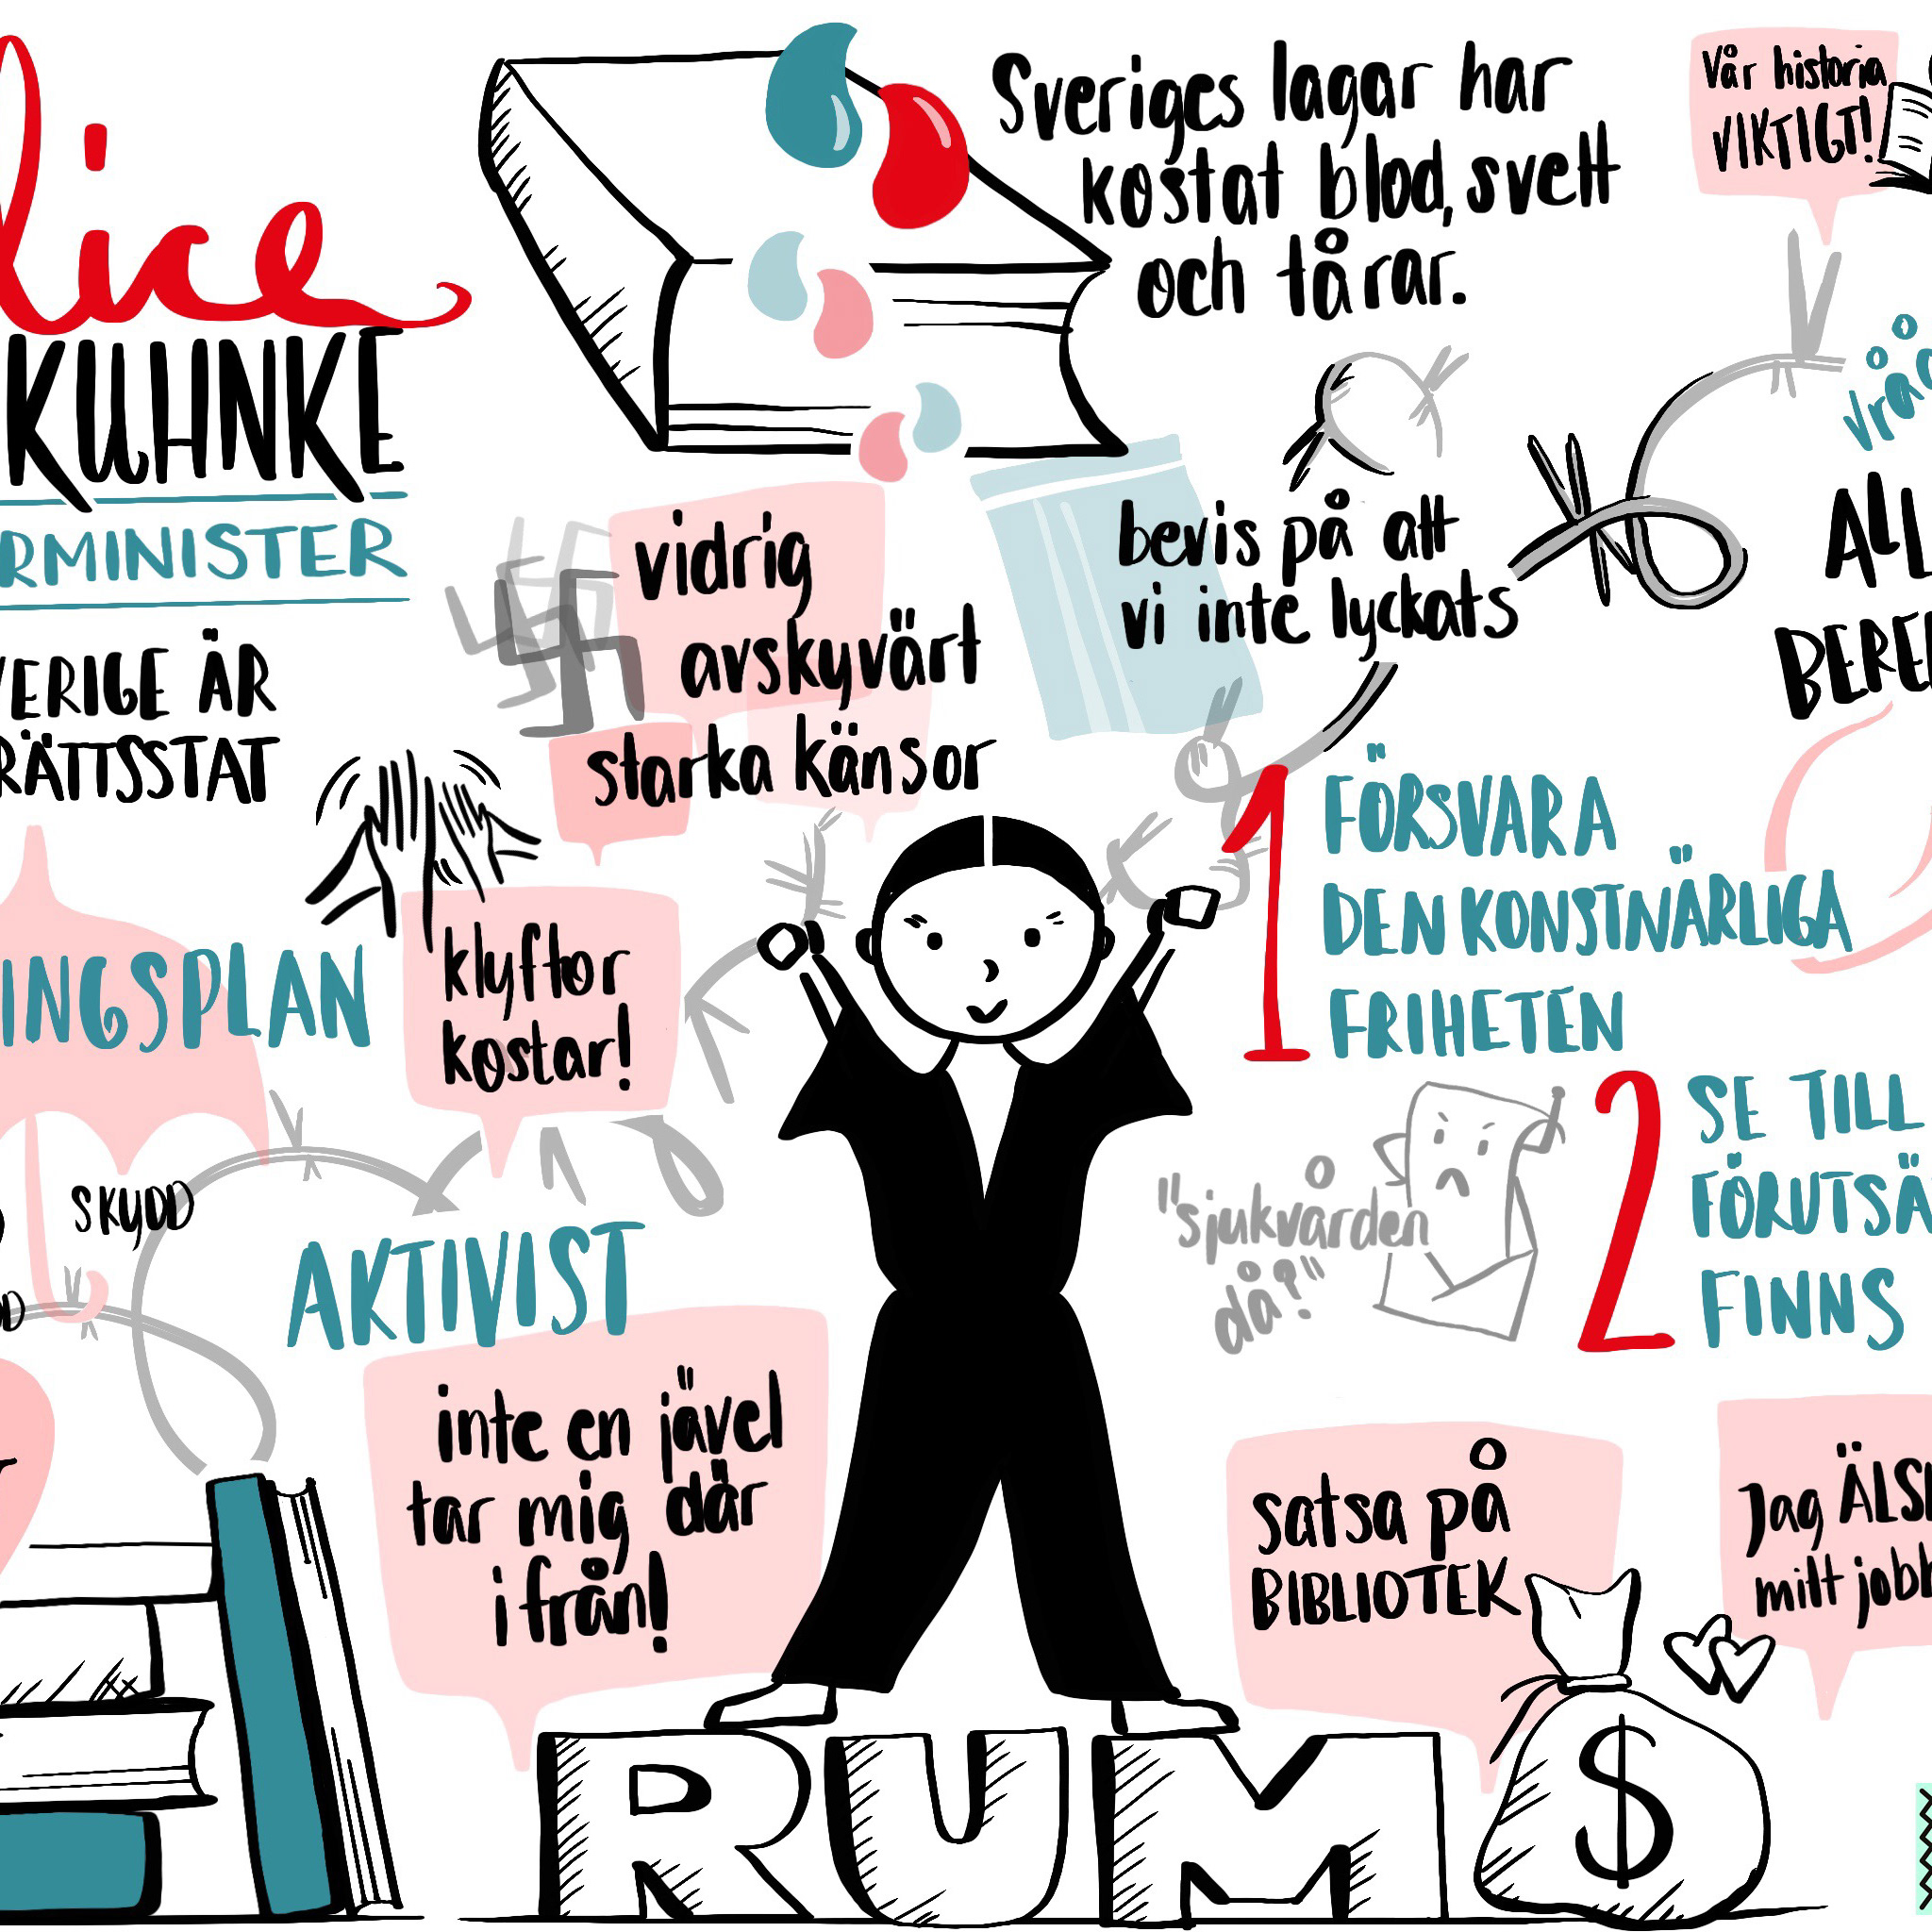 lice
KUHNKE
RMINISTER
VERIGE ÄR
RÄTTSSTAT
Sveriges lagar har
kostat blod, svett
och tårar.
Vår historia
VIKTIGT!
vidrig
avskyvärt
starka känsor
bevis på att
vi inte lyckats
ALL
BERE
INGSPLAN
klyftor
kostar!
SKYDD
AKTIVIST
inte en jävel
tar mig där
ifrån!
1 FÖRSVARA
DEN KONSTNÄRLIGA
FRIHETEN
"sjukvården
då?"
2 SE TILL
FÖRUTSÄ
FINNS
satsa på
BIBLIOTEK
Jag ÄLS
mitt jobb
RUM
$